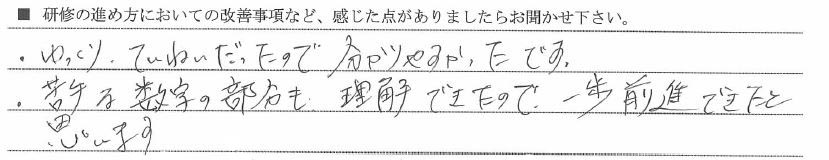 ■ 研修の進め方においての改善事項など、感じた点がありましたらお聞かせ下さい。
・ゆっくり、ていねいだったので分かりやすかったです。
・苦手な数字の部分も、理解できたので、一歩前進できたと
思います